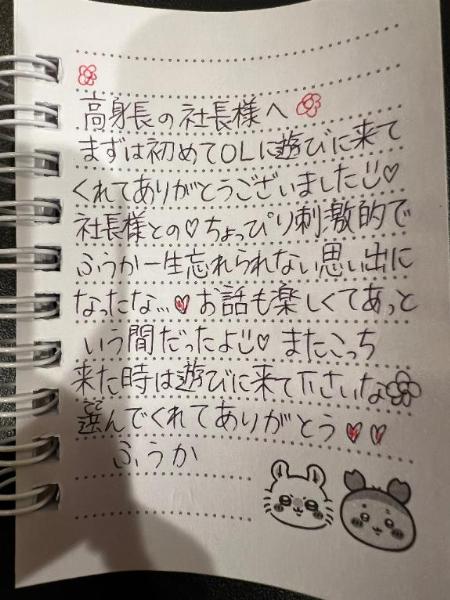 高身長の社長様へ
まずは初めてOLに遊びに来て
くれてありがとうございました♡
社長様との♡ちょっぴり刺激的で
ふうか一生忘れられない思い出に
なったな...♥お話も楽しくてあっと
いう間だったよ♡またこっち
来た時は遊びに来て下さいな
選んでくれてありがとう♥♥
ふうか